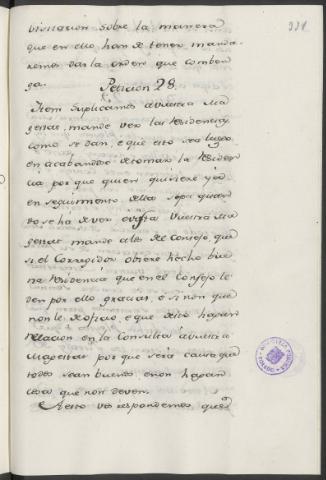 331
bisitacion sobre la manera
que en ello han de tener manda-
remos dar la orden que comben
ga.
Peticion 28.
Item suplicamos a vuestra Ma
gestad mande ver las Residencias
como se dan, e que esto sea luego
en acabandose de tomar la Residen
cia por que quien quisiere yr
en seguimiento della sepa quando
se ha de ver e vuestra Ma
gestad mande a los del Consejo, que
si el Corregidor obiere hecho bue
na Residencia que en el Consejo le
den por ello gracias, e si non que
non le de oficio, e que desto hagan
relacion en la Consulta a vuestra
Magestad por que sera causa que
todos sean buenos e non hagan
cosa que non deven.
A esto vos respondemos, que